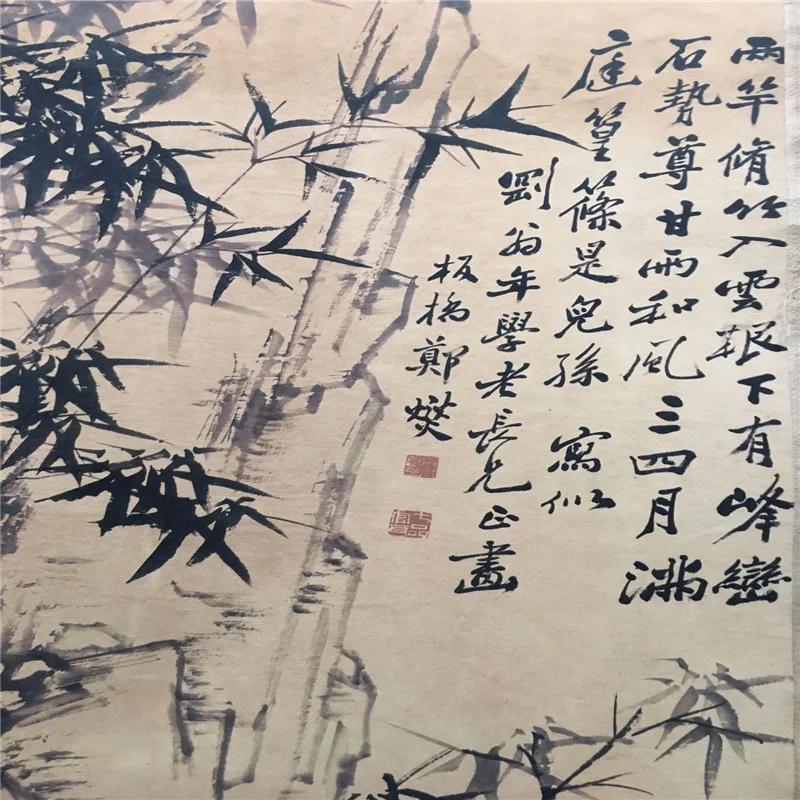 兩竿脩竹入雲根下有峰巒
石勢尊甘雨和風三四月滿
庭篁篠是兒孫 寫似
剛翁年學老長兄正畫
板橋鄭燮
七品官耳